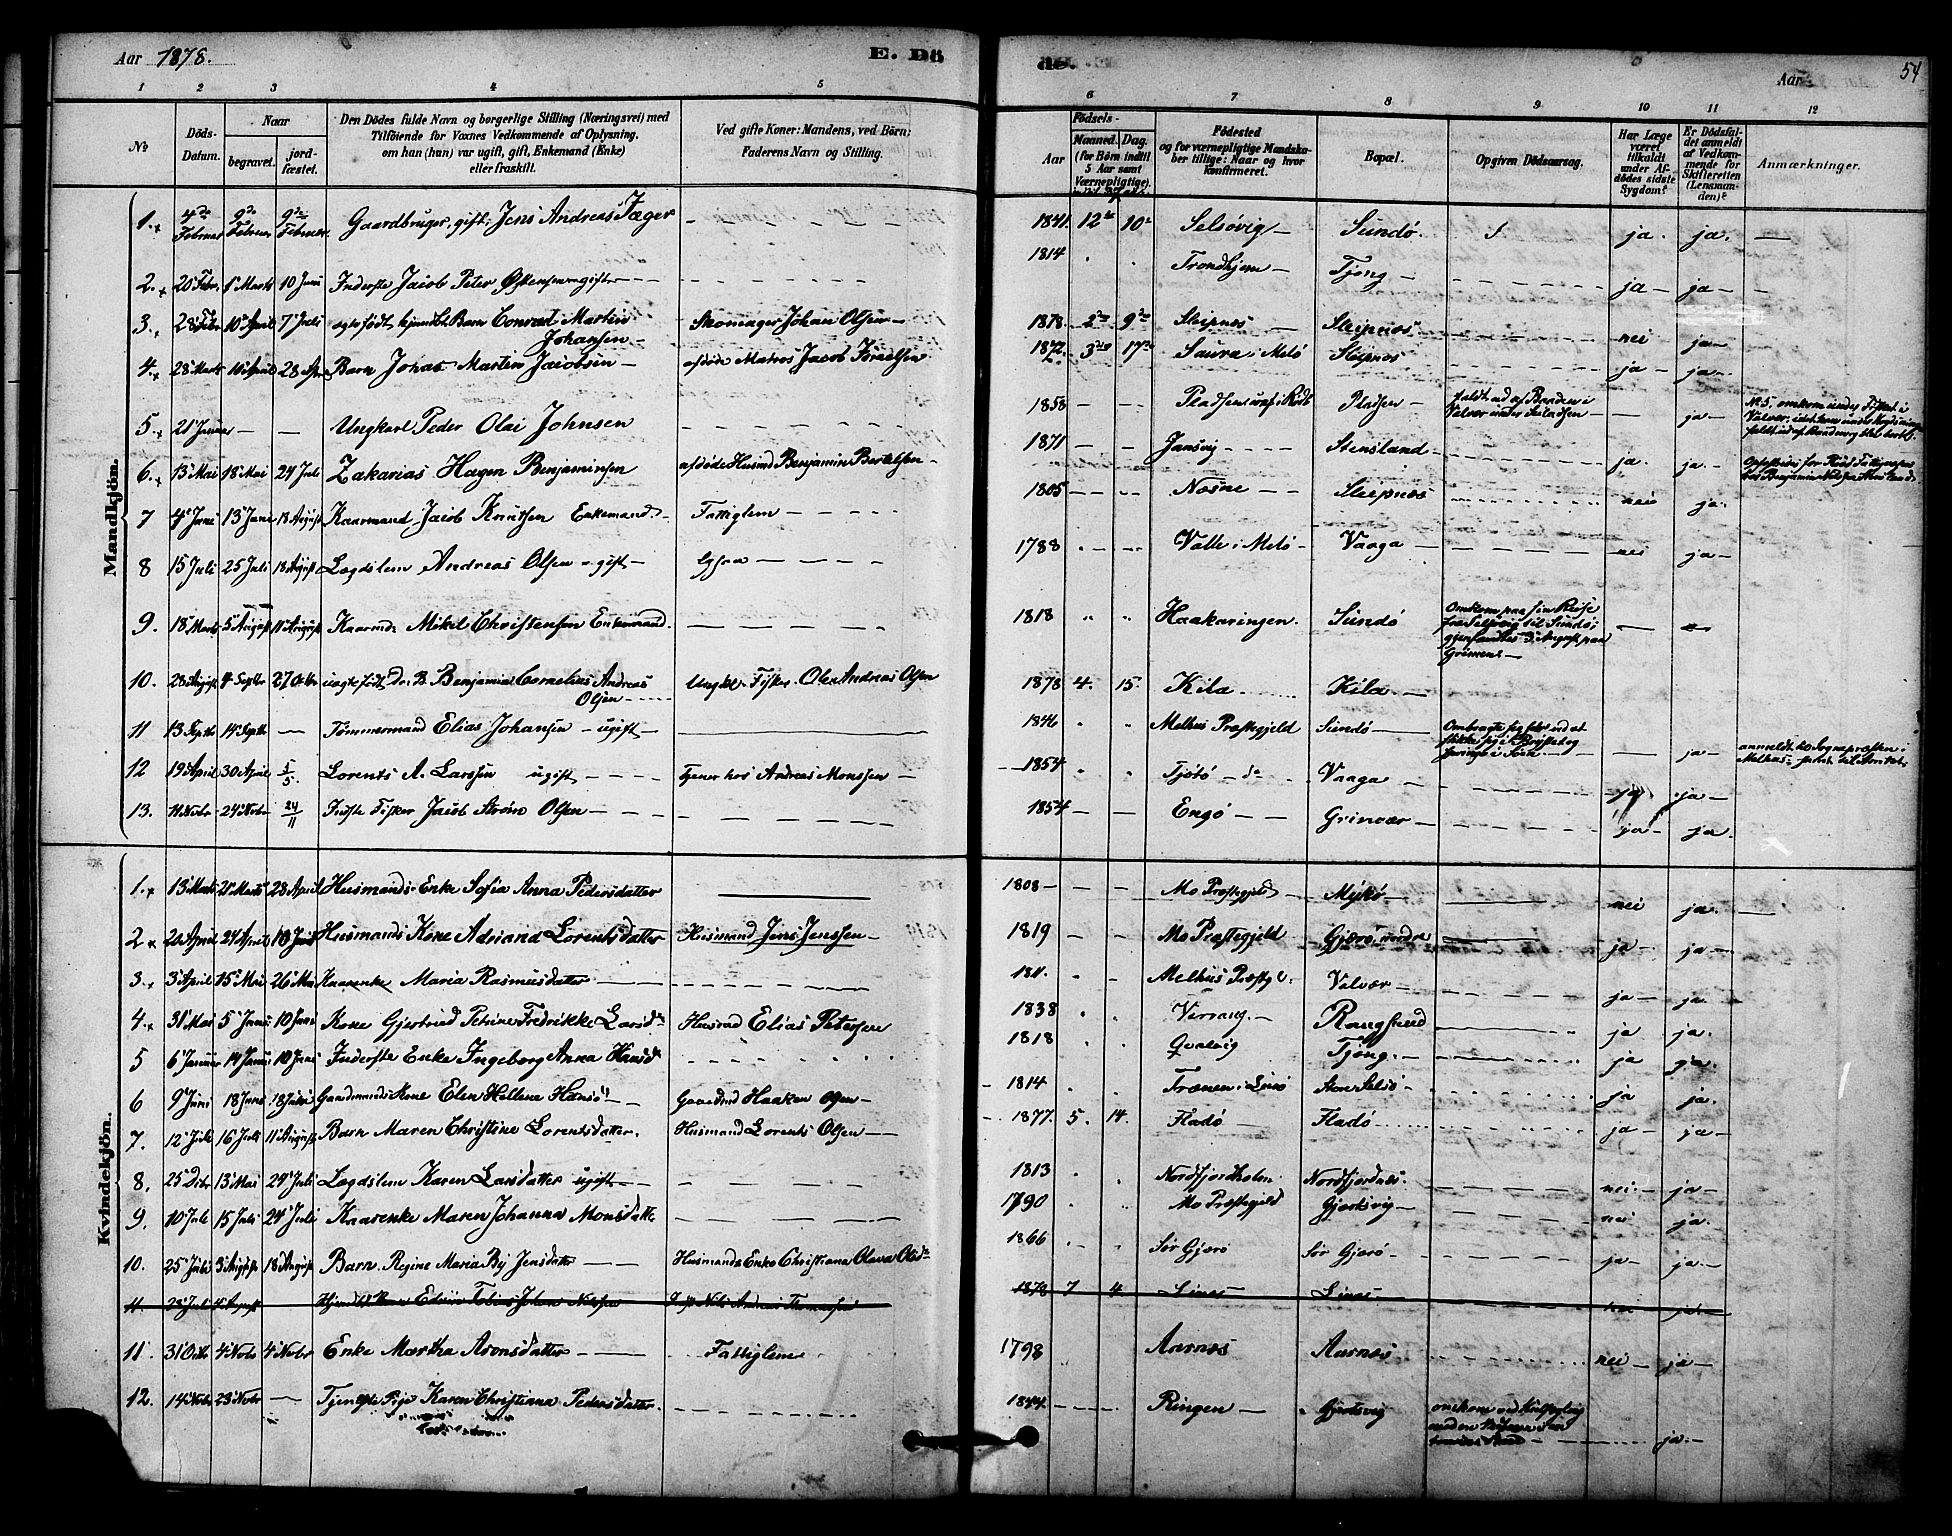 Aar 1878.
E. Dö
de.
Aar
54
1 2 3 4 5
6 7 8 9 10 11 12
No
Döds-Datum.
Naar
begravet.
jordfæstet.
Den Dödes fulde Navn og borgerlige Stilling (Næringsvei) med
Tilföiende for Voxnes Vedkommende af Oplysning.
om han (hun) var ugift, gift, Enkemand (Enke)
eller fraskilt.
Ved gifte Koner: Mandens, ved Börn:
Faderens Navn og Stilling.
Födsels-
Aar
Maaned. Dag.
(for Börn indtil
5 Aar samt
Værnepligtige).
Födested
og for værnepligtige Mandskaber tillige: Naar og hvor
konfirmeret.
Bopæl.
Opgiven Dödsaarsag.
Har Læge
været
tilkaldt
under Afdödes sidste
Sygdom?
Er Dödsfaldet anmeldt
af Vedkommende for
Skifteretten
(Lensmanden)?
Anmærkninger.
Mandkjön.
1. 4de Februar 9de Februar 9de Februar Gaardbruger, gift, Jens Andreas Jæger — 1841. 12te 10 Selsövig — Sundö. ja. ja. —
2. 20 Febr. 1 Marts 10 Juni Inderste Jacob Peter Östensen ugift — 1814 Trondhjem — Tjong — ja — ja —
3. 28 Febr 10 April 7 Juli ægtefödt hjemdbt. Barn Conrad Martin Johansen — Skomager Johan Olsen — 1878 2 9 Sleipnæs — Sleipnæs — nei ja —
4. 28 Marts 10 April 28 Apr. Barn Johas Martin Jacobsen — afdöde Matros Jacob Israelsen 1872 3 17 Saura i Melö Sleipnæs ja — ja —
5. 21 Januar — — Ungkarl Peder Olai Johnsen 1858 — — Pladsen — Pladsen — faldt ud af Baaden i Valvær — ja —
6. 13 Mai 18 Mai 24 Juli Zakarias Hagen Benjaminsen afdöde Husmd Benjamin Bertelsen — 1871 — — Jansvig — Stensland — ja. ja —
7 4 Juni 13 Juni 18 August Kaarmand Jacob Knutsen Enkemand. Fattiglem — 1805 — Næsne — Sleipnæs nei ja.
8 15 Juli 25 Juli 18 August Lægdslem Andreas Olsen ugift — 1788 Valle i Melö — Vaaga — nei ja —
9. 18 Marts 5 August 11 August Kaarmd. Mikel Christensen Enkemand. 1818 Haakaringen. Sundö Omkom paa sin Reise fra Selsövig til Sundö; —
10. 28 August 4 Septbr 27 Octbr uægtefödt Benjamin Cornelius Andreas Olsen — Ungkl. Fisker Ole Andreas Olsen 1878 4. 15. Kila Kila. —
11 13 Septbr 14 Septbr — Tömmermand Elias Johansen — ugift — 1846 Melhus Præstegjeld Sundö — ja —
12 19 April 30 April 5/5 Lorents A. Larssen ugift — Tjener hos Andreas Monssen — 1854 Tjötö — Vaaga — ja —
13. 11 Novbr 24 Novbr 24/11 Indste Fisker Jacob Ström Olsen — 1854 — Engö — Grinvær — ja — ja —
Kvindekjön.
1. 13 Marts 21 Marts 28 April Husmands Enke Sofia Anna Pedersdatter 1808 — — — Mo Præstegjeld — Myskö — nei ja. —
2 20 April 24 April 10 Juni Husmands Kone Adriana Lorentsdatter Husmand Jens Jenssen — 1819 — Mo Præstegjeld Gjærö, nordre ja — ja —
3. 3 April 15 Mai 26 Mai Kaarenke Maria Rasmusdatter — 1811. Melhus Præstgl. Valvær — ja — ja —
4. 31 Mai 5 Juni 10 Juni Kone Gjertrud Petrine Fredrikke Larsd. Husmd Elias Petersen 1838 Rangsund ja ja.
5 6 Januar 14 Januar 10 Juni Inderste Enke Ingeborg Anna Hansd. 1818 Qvalvig Tjong — ja ja.
6 9 Juni 18 Juni 18 Juni Gaardmands Kone Elen Hellene Hansd. — Gaardmd Haaken Olsen — 1814 Trænen i Lurö Store Selsö — ja ja.
7. 12 Juli 16 Juli 11 August Barn Maren Christine Lorentsdatter. Husmand Lorents Olsen — 1877. 5. 14. Fladö — Fladö — ja — ja —
8. 25 Dcbr 13 Mai 24 Juli Lægdslem Karen Larsdatter ugift — 1813 Nordfjordholm Nordfjordnæs. nei. — ja —
9. 10 Juli 15 Juli 24 Juli Kaarenke Maren Johanna Monsdatter 1790 Mo Præstegjeld Gjertsvig — nei ja.
10. 25 Juli 3 August 18 August Barn. Regine Maria By Jensdatter — Husmands Enke Christiana Olava Olsd. 1866 Sör Gjærö Sör Gjærö — ja — ja. —
11. 28 Juli August Edvin Tobias Johan Nilsen Nils Andreas Thomassen 1878 7 4 Linæs Linæs —
11. 31 Octb 4 Novb 4 Novbr Enke Martha Aronsdatter — Fattiglem 1798 Aarnæs Aarnæs nei — ja —
12. 14 Novbr 23 Novbr — Tjeneste Pige Karen Christianna Pedersdatter. 1844 — Ringen — Gjertsvig ja. —